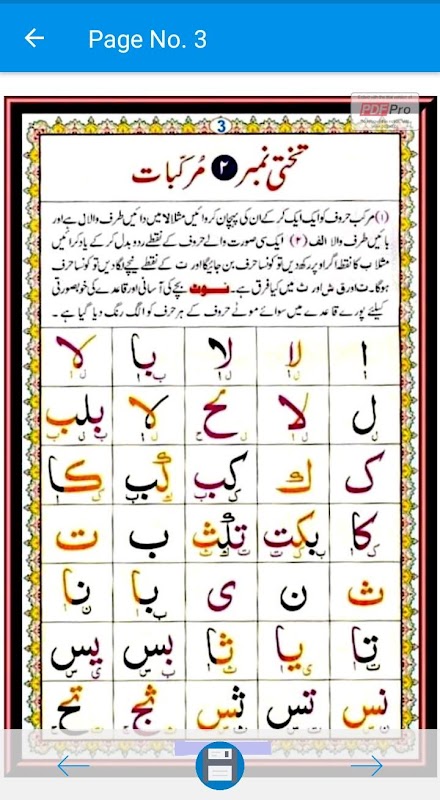 Page No. 3
PDF Pro
3
تختی نمبر ۲ مُرکّبات
(۱) مرکب حروف کو ایک ایک کر کے ان کی پہچان کروائیں مثلا لا میں دائیں طرف والا ل ہے اور
بائیں طرف والا الف (۲) ایک ہی صورت والے حروف کے نقطے ردوبدل کر کے یاد کرائیں
مثلا ب کا نقطہ اگر اوپر رکھ دیں تو کونسا حرف بن جائیگا اور ت کے نقطے نیچے لگا دیں تو کونسا حرف
ہوگا۔ ت اور ق، ش اور ث میں کیا فرق ہے۔ نوٹ بچے کی آسانی اور قاعدے کی خوبصورتی
کیلئے پورے قاعدے میں سوائے موٹے حروف کے ہر حرف کو الگ رنگ دیا گیا ہے۔
ا لا لا با لا
ل لا لح لا بلب
ک ك کب گب کا
کا بکت تلث ب ت
ث ن ی با نا
تا یا ثا بس یس
نس تس ثس ثج تح